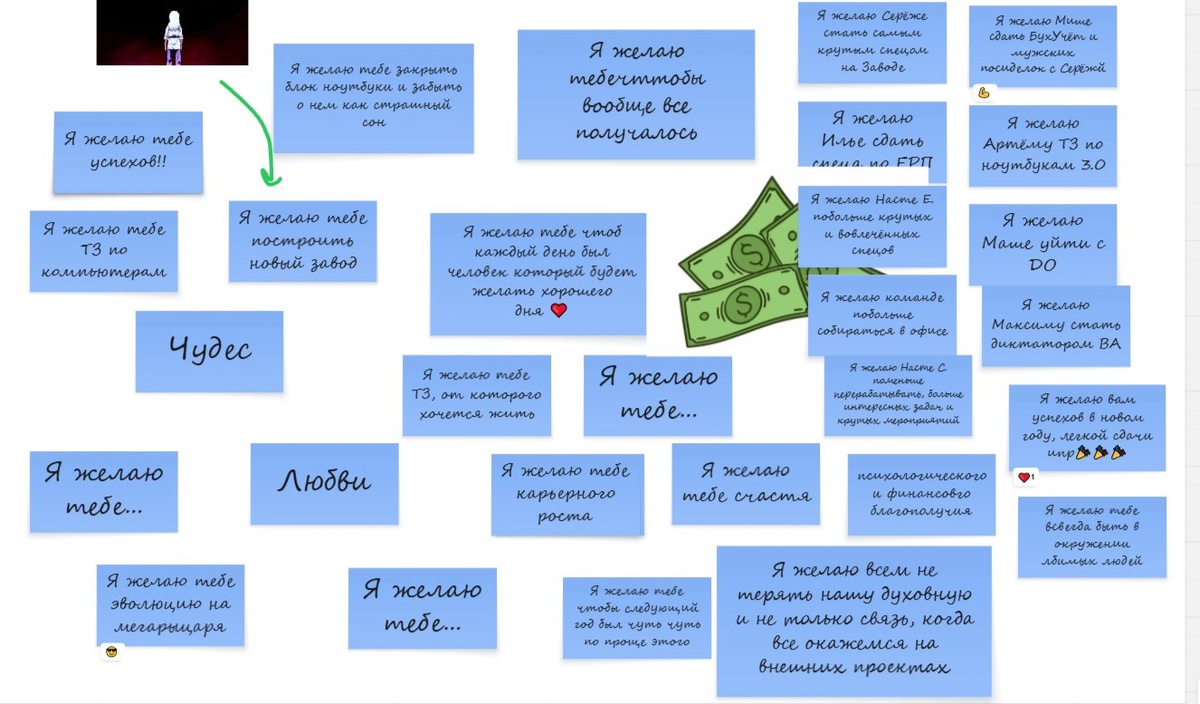 Я желаю тебе закрыть
блок ноутбуки и забыть
о нем как страшный
сон
Я желаю
тебечттобы
вообще все
получалось
Я желаю Серёже
стать самым
крутым спецом
на Заводе
Я желаю Мише
сдать БухУчёт и
мужских
посиделок с Серёжй
Я желаю тебе
успехов!!
Я желаю
Илье сдать
спеца по ЕРП
Я желаю
Артёму ТЗ по
ноутбукам 3.0
Я желаю тебе
ТЗ по
компьютерам
Я желаю тебе
построить
новый завод
Я желаю тебе чтоб
каждый день был
человек который будет
желать хорошего
дня ❤️
Я желаю Насте Е.
побольше крутых
и вовлечённых
спецов
Я желаю
Маше уйти с
DO
Чудес
Я желаю команде
побольше
собираться в офисе
Я желаю
Максиму стать
диктатором ВА
Я желаю тебе
ТЗ, от которого
хочется жить
Я желаю
тебе...
Я желаю Насте С.
поменьше
перерабатывать, больше
интересных задач и
крутых мероприятий
Я желаю вам
успехов в новом
году, легкой сдачи
ипр🎉🎉🎉
1
Я желаю
тебе...
Любви
Я желаю тебе
карьерного
роста
Я желаю
тебе счастя
психологического
и финансовго
благополучия
Я желаю тебе
всвегда быть в
окружении
лбимых людей
Я желаю тебе
эволюцию на
мегарыцаря
Я желаю
тебе...
Я желаю тебе
чтобы следующий
год был чуть чуть
по проще этого
Я желаю всем не
терять нашу духовную
и не только связь, когда
все окажемся на
внешних проектах